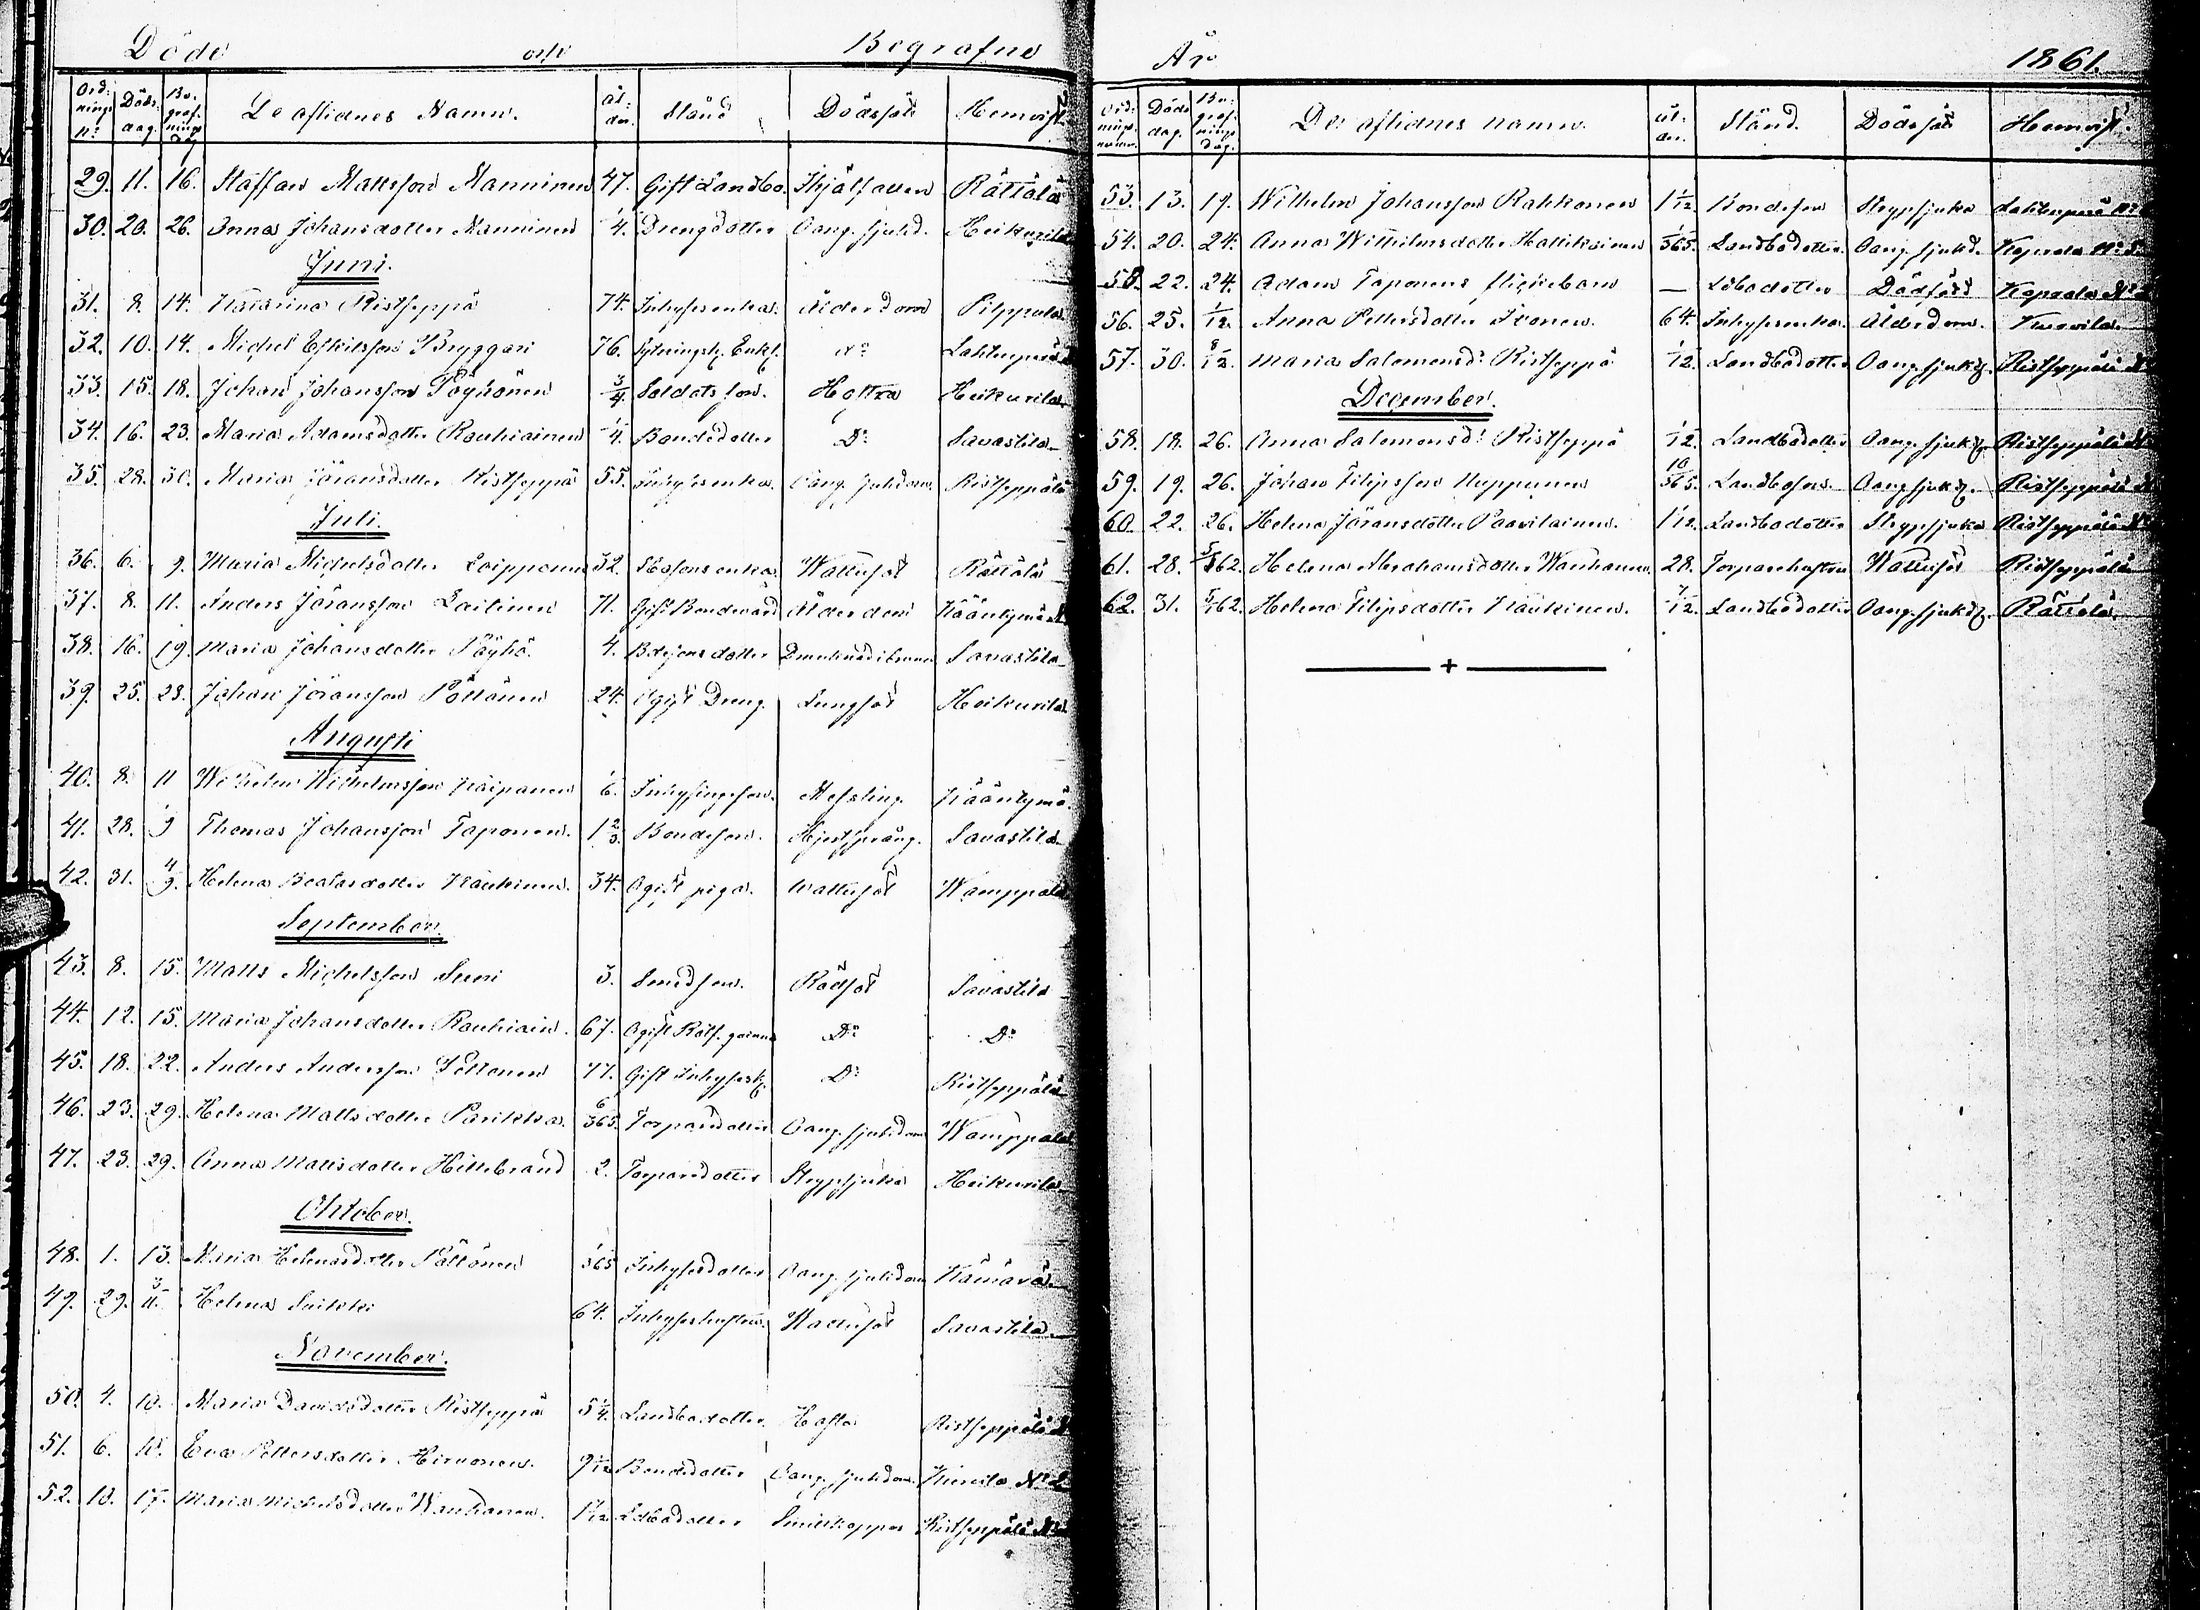 Döde och Begrafne
Ordnings N:o Döds dag. Begrafnings dag De aflidnes Namn. Ålder. Stånd Dödssätt Hemvist
29. 11. 16. Staffan Mattsson Manninen 47. Gift Landbo. Ihjälfallen Rättälä
30. 20. 26. Anna Johansdotter Manninen 1/4. Drengdotter Oang. sjukd. Heikurila
Juni.
31. 8. 14. Katarina Ristseppä 74. Inhysesenka. Ålderdom Pilppula
32. 10. 14. Michel Eskilsson Bryggari 76. Sytningsk. Enkl. D:o Lahtenperä
33. 15. 18. Johan Johansson Pöyhönen 3/4. Soldatsson. Hosta Heikurila
34. 16. 23. Maria Adamsdotter Rauhiainen 1/4. Bondedotter D:o Savastila
35. 28. 30. Maria Jöransdotter Ristseppä 55. Inhysesenka. Oang. sjukdom. Ristseppälä
Juli.
36. 6. 9. Maria Michelsdotter Loipponen 32. enka. Wattusot Rättälä
37. 8. 11. Anders Jöransson Lailinen 71. Gift Bonde Ålderdom Kääntymä
38. 16. 19. Maria Johansdotter Pöyhö. 4. dotter Drunknad i brunn Savastila
39. 25. 28. Johan Jöransson Pöllänen 24. Ogift Dreng. Lungsot Heikurila
Augusti
40. 8. 11 Wilhelm Wilhelmsson Kaipanen 6. Inhysingeson. Messling. Kääntymä.
41. 28. 1/9 Thomas Johansson Taponen. 1 2/3. Bondeson. Hjertsprång. Savastila
42. 31. 4/9. Helena Beatasdotter Kaukinen. 34. Ogift piga. Wattusot Wamppala
September.
43. 8. 15. Matts Michelsson Suni 3. Smedson. Rödsot Savastila
44. 12. 15. Maria Johansdotter Rauhiain. 67. Ogift D:o D:o
45. 18. 22. Anders Andersson Peltonen 77. Gift Inhysesk. D:o Ristseppälä
46. 23. 29. Helena Mattsdotter Parikka. 6/365. Torparedotter Oang. sjukdom Wamppala
47. 23. 29. Anna Mattsdotter Hillebrand 2. Torparedotter Strypsjuka Heikurila
Oktober.
48. 1. 13. Maria Helenasdotter Pöllänen 1/365 Inhysesdotter Oang. sjukdom Kämärä
49. 29. 3/11. Helena Suikki 64. Inhyseshustru. Wattusot Savastila
November.
50. 4. 10. Maria Davidsdotter Ristseppä 5 1/4. Landbodotter. Hosta Ristseppälä
51. 6. 10. Eva Pettersdotter Hirvonen. 9/12 Bondedotter Oang. sjukdom. Kurvila N:o 2
52. 10. 17. Maria Michelsdotter Wanhanen. 1 7/12 Ldbodotter Smittkoppor Ristseppälä N:o
År 1861.
Ordnings numer. Döds dag. Begrafnings dag. De aflidnes namn. Ålder. Stånd. Dödssätt Hemvist.
53. 13. 19. Wilhelm Johansson Rahkonen 1 1/12 Bondeson Strypsjuka Lahtenperä N:o
54. 20. 24. Anna Wilhelmsdotter Hallikainen 1/365. Landbodotter. Oang. sjukd. Koprala N:o
55. 22. 24. Adam Taponens flickebarn — Ldbodotter Dödfödd Koprala N:o
56. 25. 1/12. Anna Pettersdotter Ivonen. 64. Inhysesenka. Ålderdom. Kurvila
57. 30. 8/12. Maria Salomonsd:r Ristseppä 1/12. Landbodotter Oang. sjukd. Ristseppälä
December.
58. 18. 26. Anna Salomonsd:r Ristseppä 1/12. Landbodotter Oang. sjukd. Ristseppälä
59. 19. 26. Johan Filipsson Huppunen 10/365. Landboson. Oang. sjukd. Ristseppälä
60. 22. 26. Helena Jöransdotter Paavilainen. 1 1/12. Landbodotter Strypsjuka Ristseppälä N:o
61. 28. 5/1 62. Helena Abrahamsdotter Wanhanen. 28. Torparehustru Wattusot Ristseppälä
62. 31. 5/1 62. Helena Filipsdotter Kaukinen. 7/12. Landbodotter Oang. sjukd. Rättälä.